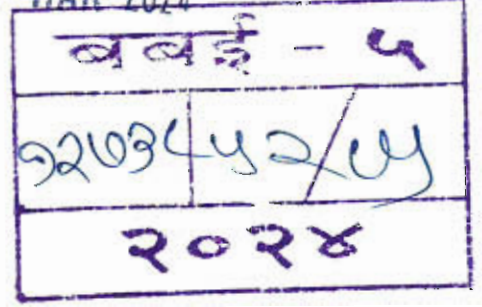 MAR 2024
बबई - ५
१२७३८ ५२/७५
२०२४